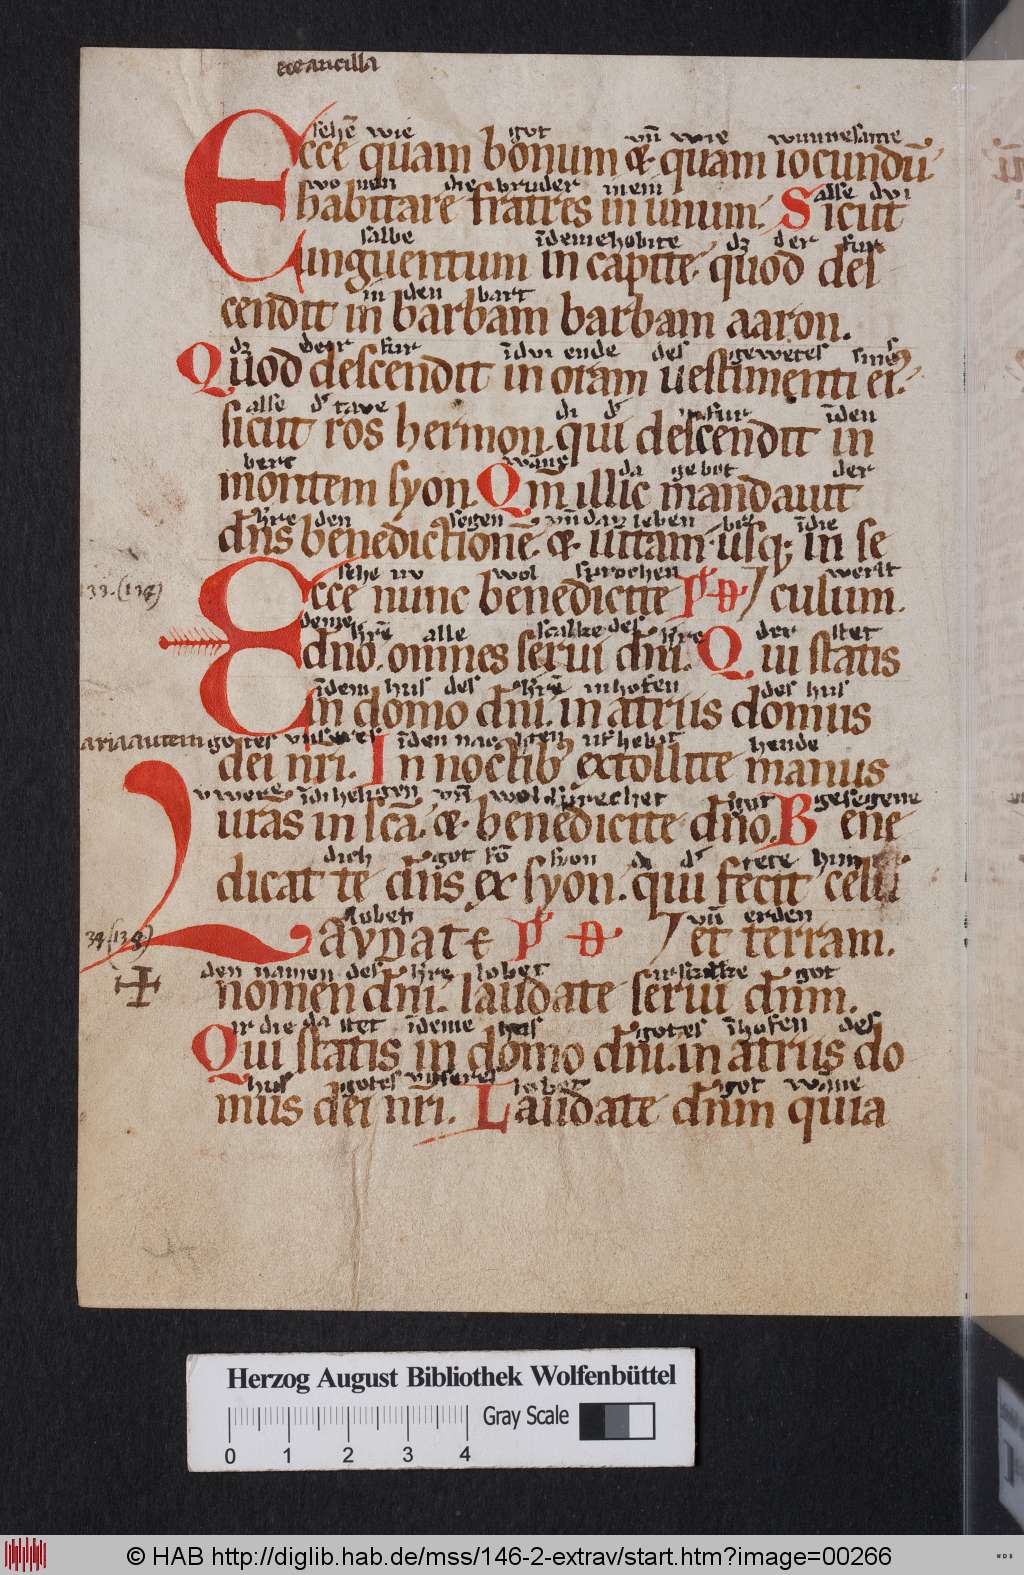 ecce ancilla
sehē wie got vñ wie wunnesame
Ecce quam bonum & quam iocundū
wonen die bruder inein alse dvi
habitare fratres in unum. Sicut
salbe īdemehobite dz der fur
unguentum in capite. quod des
in den bart
cendit in barbam barbam aaron.
dz der fur īdvi ende des gewetes sines
Quod descendit in oram uestimenti eiꝰ.
alse dʼ tave di dʼ fur īden
sicut ros hermon. qui descendit in
berc wāne da gebot der
montem syon. Qm̄ illic mandauit
hʼre den segen vñ daz leben biz īdie
dn̄s benedictionē. & uitam. usq; in se
133.(134) sehe nv wol sprechen werlt
Ecce nunc benedicite Pˢ D culum.
deme hʼrē alle scalke des hʼre der stet
dn̄o. omnes serui dn̄i. Qui statis
īdem hus des hʼrē inhofen des hus
in domo dn̄i. in atriis domus
aria autem gottes vnseres īden nachten ufhebit hende
dei nr̄i. In noctibꝰ extollite manus
vwere īdiheligen vñ wolsprechet got gesegene
uras in sc̄a. & benedicite dn̄o. Bene
dich got fō syon dʼ tete himel
dicat te dn̄s ex syon. qui fecit celū
34.(134.) lobet vñ erden
Laudate Pˢ D et terram.
den namen des hʼre lobet ir scalke got
nomen dn̄i. laudate serui dn̄m.
ir die da stet īdeme hus gotes īhofen des
Qui statis in domo dn̄i. in atriis do
hus gotes vnseres lobet got wāne
mus dei nr̄i. Laudate dn̄m quia
Herzog August Bibliothek Wolfenbüttel
Gray Scale
0 1 2 3 4
© HAB http://diglib.hab.de/mss/146-2-extrav/start.htm?image=00266